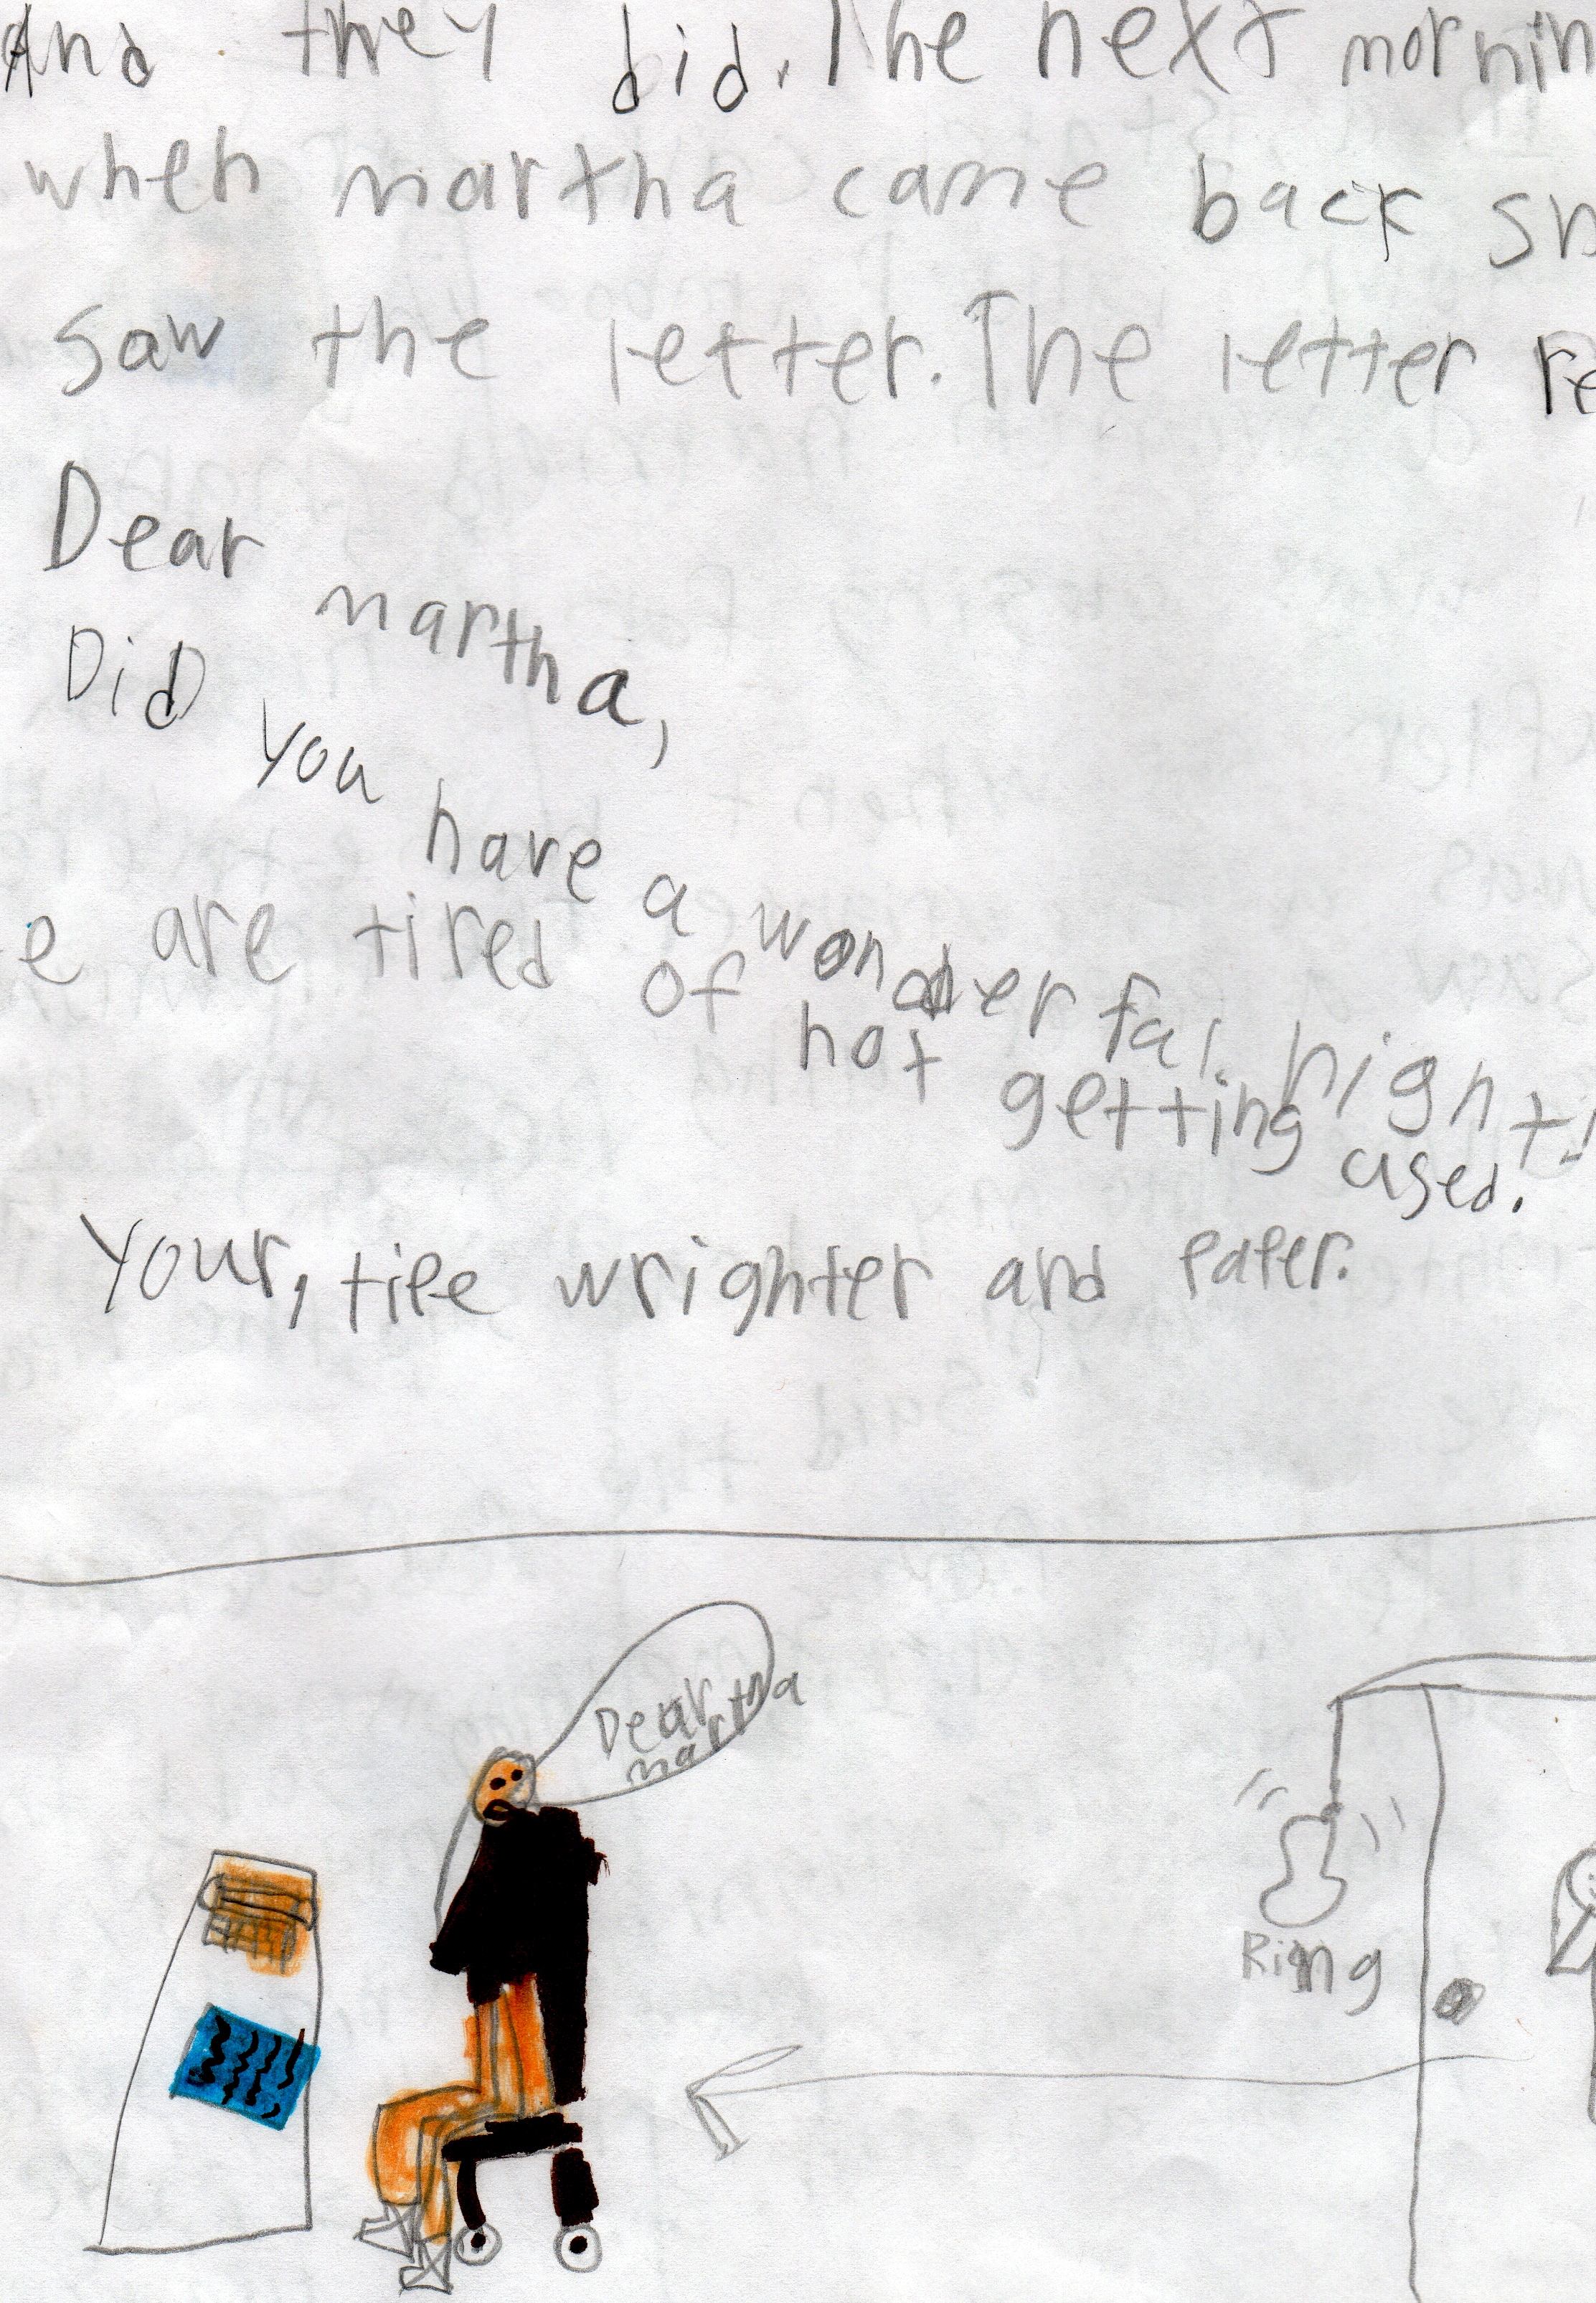 And they did. The next mornin
when martha came back sh
saw the letter. The letter re
Dear martha,
Did you have a wonderful night!
e are tired of not getting used.
Your, tipe wrighter and paper.
Dear
martha
Ring